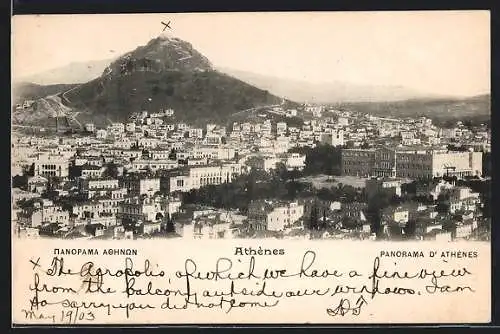 ΠΑΝΟΡΑΜΑ ΑΘΗΝΩΝ
Athènes
PANORAMA D' ATHÈNES
x The Acropolis of which we have a fine view
from the balcony outside our windows. I am
so sorry you did not come
May 19/03